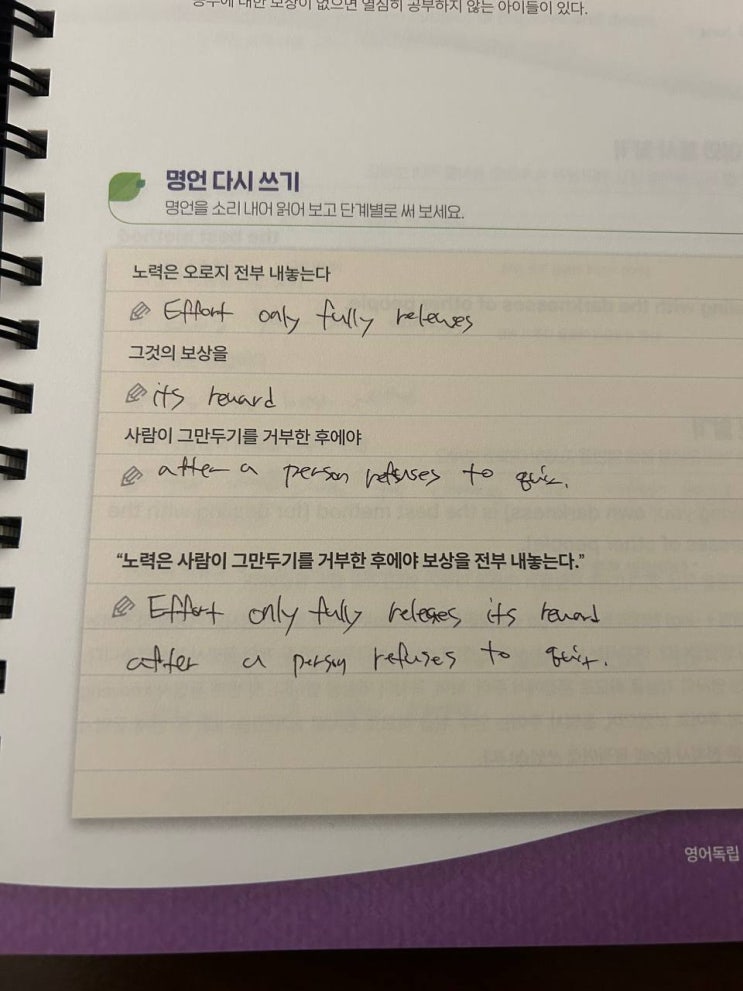 공부에 대한 보상이 없으면 열심히 공부하지 않는 아이들이 있다.
명언 다시 쓰기
명언을 소리 내어 읽어 보고 단계별로 써 보세요.
노력은 오로지 전부 내놓는다
Effort only fully releases
그것의 보상을
its reward
사람이 그만두기를 거부한 후에야
after a person refuses to quit.
“노력은 사람이 그만두기를 거부한 후에야 보상을 전부 내놓는다.”
Effort only fully releases its reward
after a person refuses to quit.
영어독립